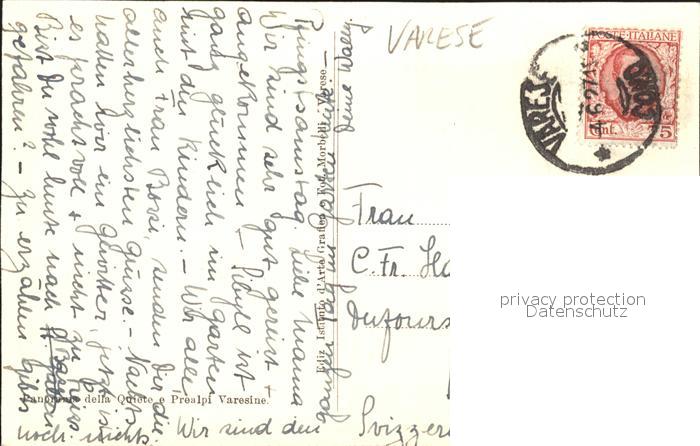 VARESE
POSTE ITALIANE
VARESE
COMO
Cent.
Pfingstsamstag. Liebe Mama
Wir sind sehr gut gereist +
angekommen – Sibyle ist
ganz glücklich im Garten
mit den Kindern. – Wir alle,
auch Frau Bossi, senden Dir die
allerherzlichsten Grüsse. – Nachts
hatten wir ein Gewitter, jetzt ist
es prachtvoll + nicht zu heiss
Bist Du wohl heute nach
gefahren? – zu erzählen gibts
noch nichts. Wir sind den
Deine
Ediz. Istituto d'Arte Grafica - Fot. Morbelli - Varese
Panorama della Quiete e Prealpi Varesine.
Frau
C. Fr.
Dufours
Svizzer
privacy protection
Datenschutz